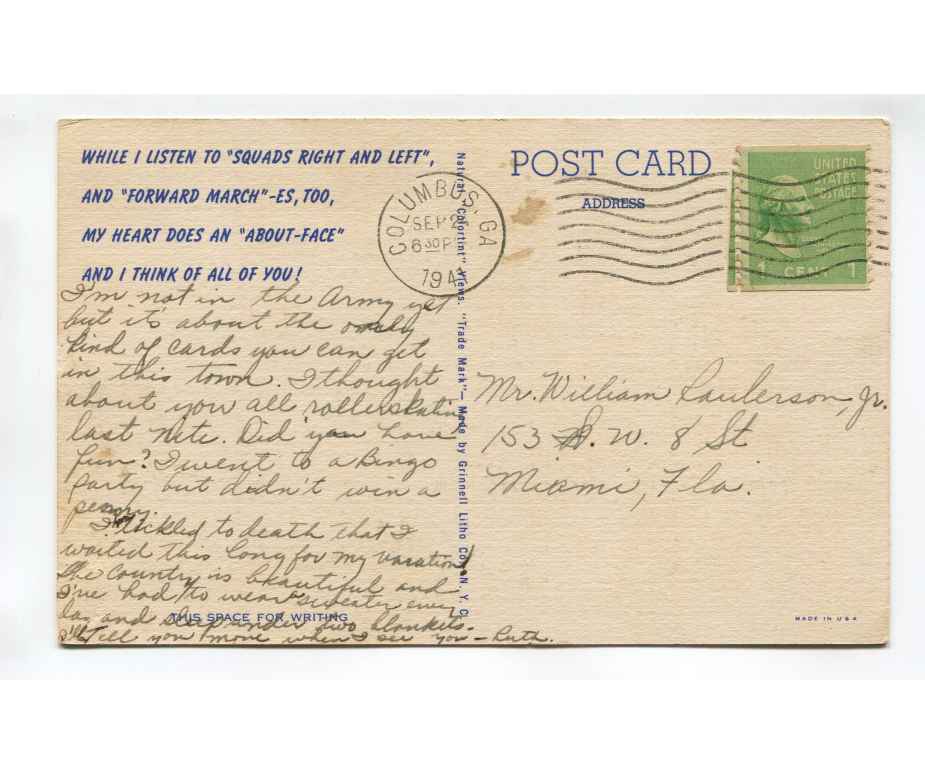 WHILE I LISTEN TO "SQUADS RIGHT AND LEFT",
AND "FORWARD MARCH"-ES, TOO,
MY HEART DOES AN "ABOUT-FACE"
AND I THINK OF ALL OF YOU!
I'm not in the Army yet
but it's about the only
kind of cards you can get
in this town. I thought
about you all rollerskating
last nite. Did you have
fun? I went to a Bingo
Party but didn't win a
penny.
I tickled to death that I
waited this long for my vacation!
The country is beautiful and
I've had to wear a sweater every
day and sleep under two blankets.
I'll tell you more when I see you — Ruth.
THIS SPACE FOR WRITING
Natural "Colortint" Views. "Trade Mark"— Made by Grinnell Litho Co. N. Y. C.
POST CARD
ADDRESS
COLUMBUS, GA
SEP 2
6 30 P
194
UNITED
STATES
POSTAGE
1 CENT 1
Mr. William Saulerson, Jr.
153 S. W. 8 St
Miami, Fla.
MADE IN U S A